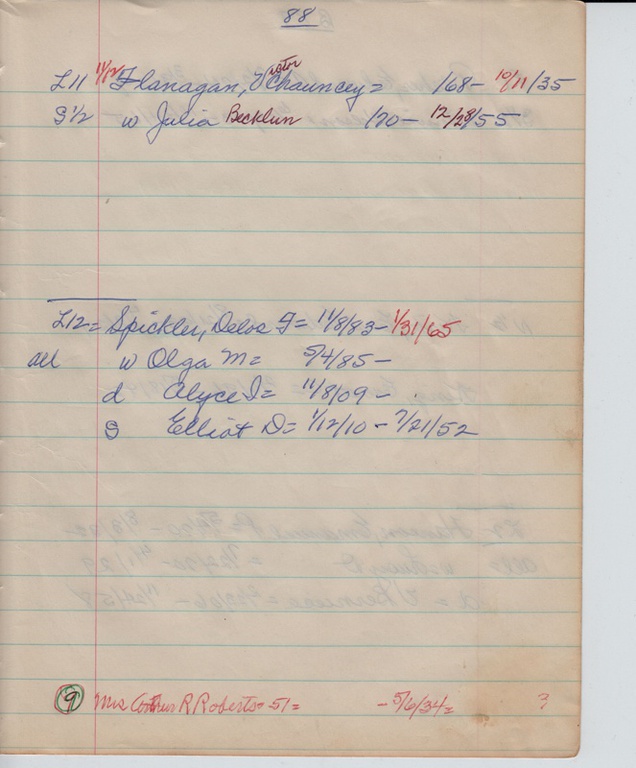 88
L11 11/12 Flanagan, V Chauncey = 168- 10/11/35
S 1/2 w Julia Becklun 170- 12/28/55
L12 = Spickler, Delos G = 11/8/83 - 1/31/65
all w Olga M = 5/4/85 -
d Alyce I = 11/8/09 -
S Elliot D = 1/12/10 - 7/21/52
9 Mrs R Roberts = 51 = - 5/6/34 = ?